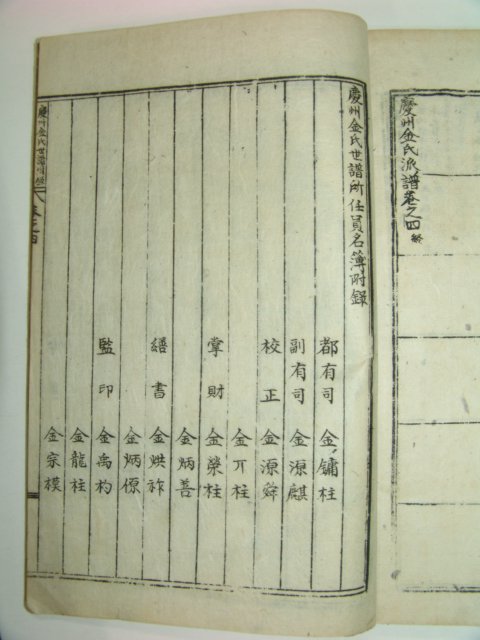 慶州金氏派譜卷之四 終
慶州金氏世譜所任員名簿附錄
都有司 金鏞柱
副有司 金源麒
校正 金源舜
金丌柱
掌財 金榮柱
金炳善
繕書 金烘祚
金炳傆
監印 金禹杓
金龍柱
金宗模
慶州金氏世譜
卷之四